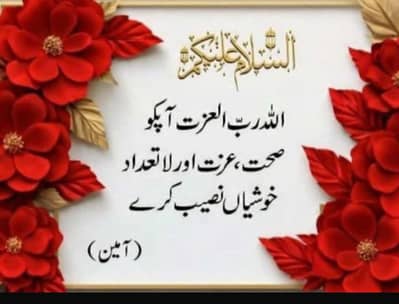 السلام علیکم
اللہ ربّ العزت آپکو
صحت، عزت اور لا تعداد
خوشیاں نصیب کرے
(آمین)